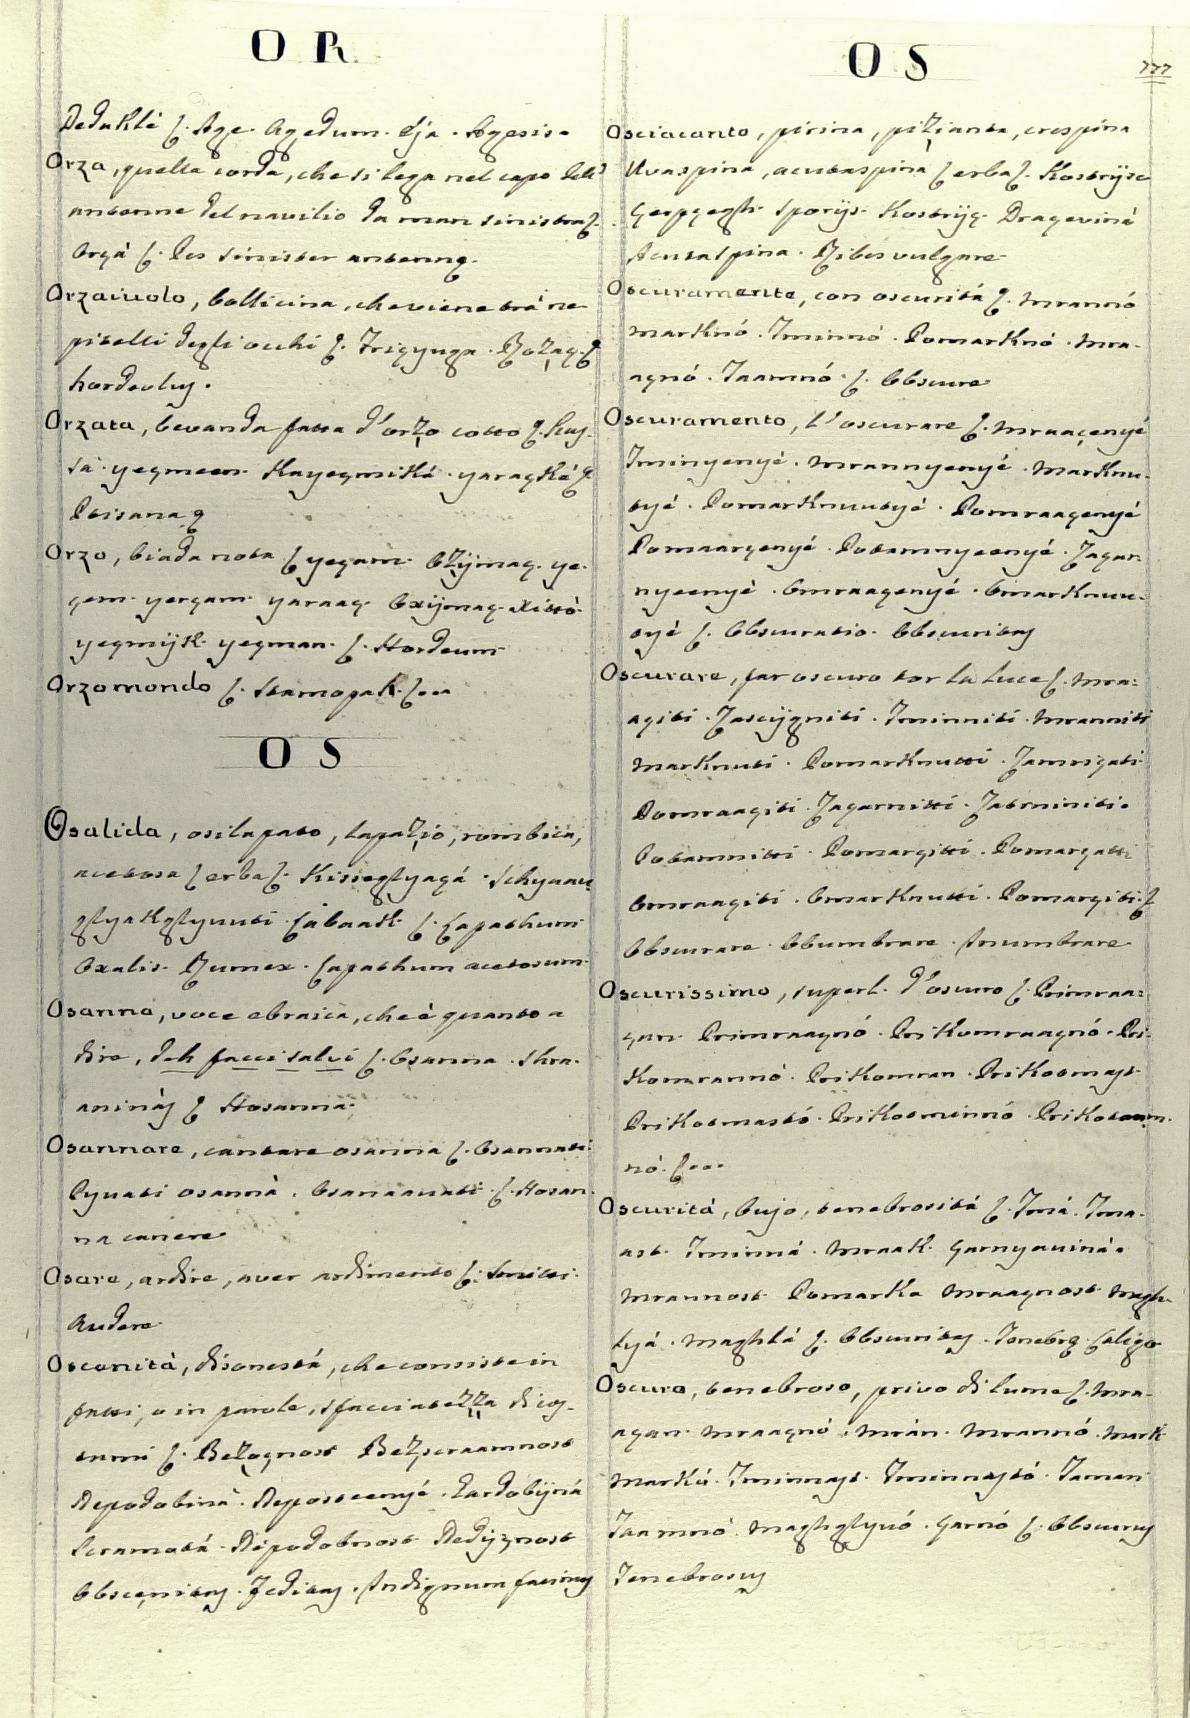 OR
Deduklè ſ. Age. Agedum. Eja. Agesis.
Orza, quella corda, che si lega nel capo dell'
antenne del navilio da man sinistra ſ.
Orça ſ. Pes sinister antennę.
Orzaiuolo, bollicina, che viene trà ne-
pitelli degli occhi ſ.
hordeolus.
Orzata, bevanda fatta d'orzo cotto ſ.
Ptisana, ę
Orzo, biada nota ſ yeçam. Oziimaç. ye-
çem. yerçam. yaraaç. Oxijmaç. Xittò.
yeçmijk. yeçman. ſ. Hordeum.
Orzomondo ſ. stamopak. ſ...
OS
Osalida, osilapato, lapazio, rombica,
acetosa ſ erba ſ. Kisseglyaçà.
ſ. Lapathum.
Oxalis. Rumex. Lapathum acetosum.
Osanna, voce ebraica, che è quanto a
dire, deh facci salvi ſ. Osanna. shra-
ſ Hosanna.
Osannare, cantare osanna ſ. Osannati.
Pyvati osannà. Osanaavati. ſ. Hosan-
na canere.
Osare, ardire, aver ardimento ſ. Smitti.
Audere.
Oscenità, disonestà, che consiste in
fatti, o in parole, sfacciatezza di cos-
tumi ſ. Bezoçnost Bezscraamnost
Nepodobinà. Neposteenyé.
Scramotà. Nepodobnost
Obscenitas. Fęditas. Indignum facinus
OS
777
Osciacanto, pirina, pizianta, crespina
Uvaspina, acutaspina ſ erba ſ.
Dragevinà
Acutaspina. Ribes vulgare.
Oscuramente, con oscurità ſ. mrannó
marknó. Tminnó. Pomarknó. mra-
açnó. Taamnó. ſ. Obscure.
Oscuramento, l'oscurare ſ. mraaçenyé
Tminyenyé. mrannyenyé. marknu-
tyé. Pomarknuutyé. Pomraaçenyé
Pomaarçenyé. Potamnyeenyé. Zaçar-
nyeenyé. Omraaçenyé. Omarknuu-
tyé ſ. Obscuratio. Obscuritas
Oscurare, far oscuro tor la luce ſ. mra-
açiti. Tminniti. mranniti
marknuti. Pomarknutti. Zamriçati.
Pomraaçiti. Zaçarnitti. Zatminiti.
Potamnitti. Pomarçitti. Pomarçatti
Omraaçiti. Omarknutti. Pomarçiti. ſ
Obscurare. Obumbrare. Inumbrare.
Oscurissimo, superl. d'oscuro ſ. Primraa-
çan. Primraaçnó. Prikomraaçnó. Pri-
komrannó. Prikomran. Prikotmast.
Prikotmastó. Prikotminnó. Prikotaam-
nó. ſ...
Oscurità, bujo, tenebrosità ſ. Tmà. Tma-
ast. Tminnà. mraak. Garnyavinà.
mrannost. Pomarka mraaçnost magh-
lyà. maghlà ſ. Obscuritas. Tenebrę. Caligo
Oscuro, tenebroso, privo di lume ſ. mra-
açan. mraaçnó. mràn. mrannó. mark
markó. Tminnast. Tminnastó. Taman
Taamnó. maghglyvó. Garnó ſ. Obscurus
Tenebrosus